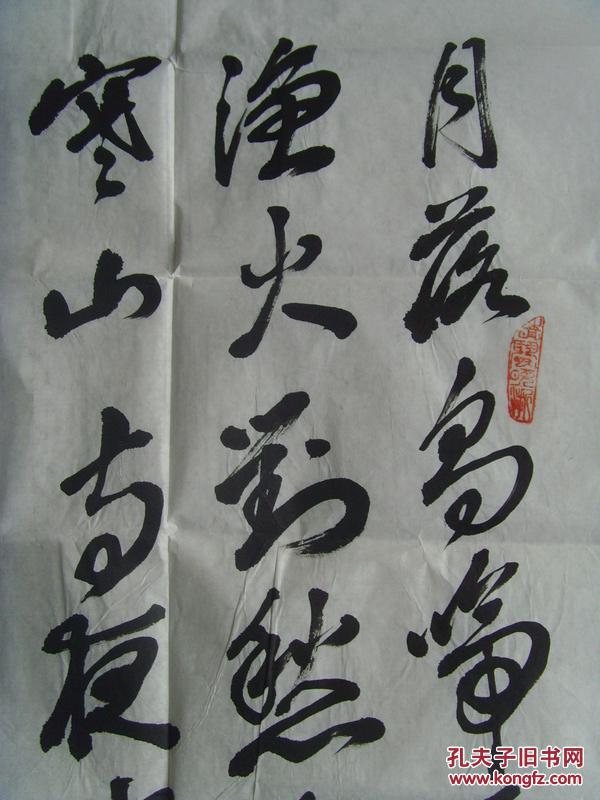 月落烏啼
渔火對愁
寒山寺夜
孔夫子旧书网
www.kongfz.com